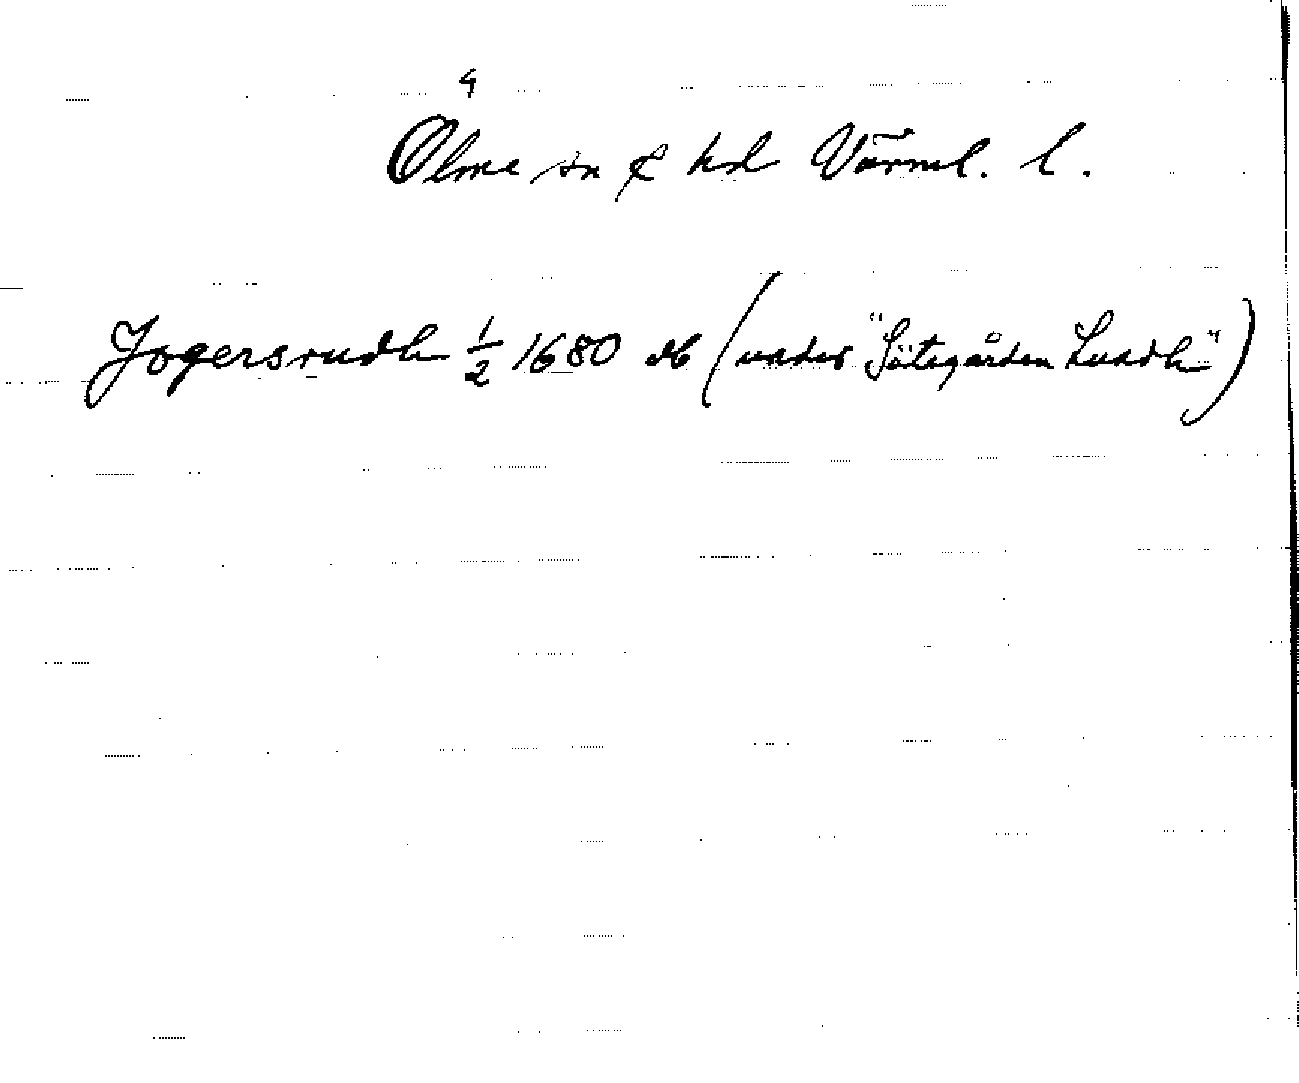 4
Ölme sn & hd Värml. l.
Jogersrudh 1/2 1680 db (under "Sätegården Lundh")